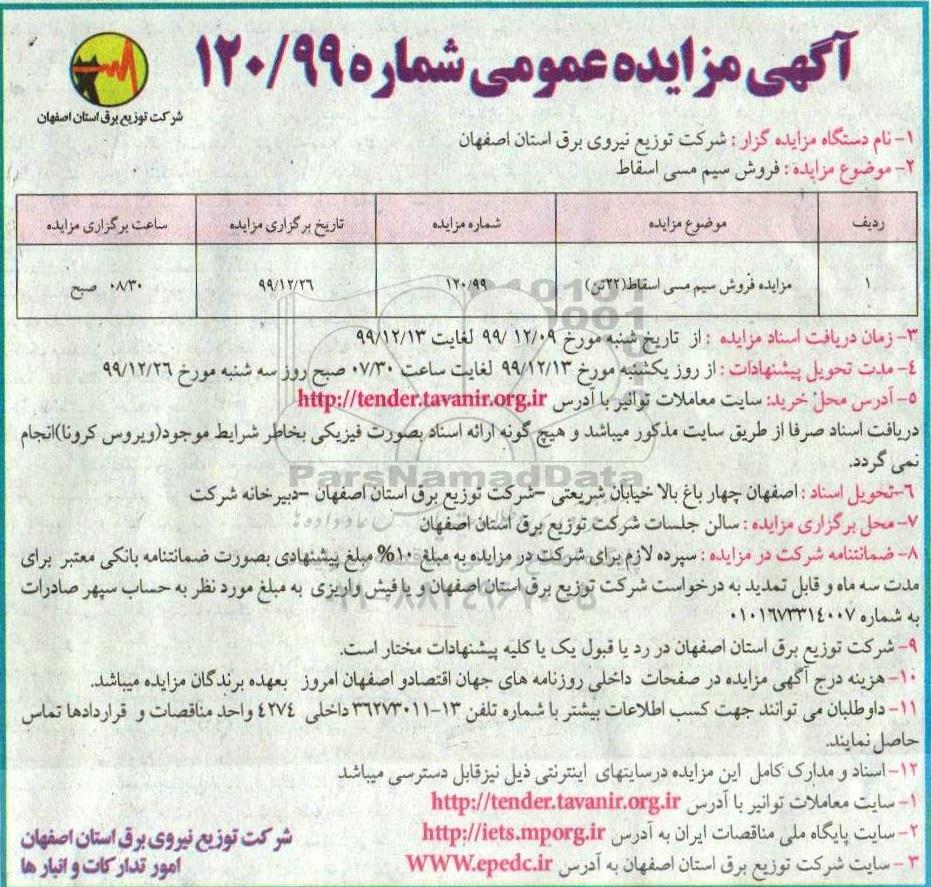 آگهی مزایده عمومی شماره ۱۲۰/۹۹
شرکت توزیع برق استان اصفهان
۱- نام دستگاه مزایده گزار : شرکت توزیع نیروی برق استان اصفهان
۲- موضوع مزایده : فروش سیم مسی اسقاط
ردیف موضوع مزایده شماره مزایده تاریخ برگزاری مزایده ساعت برگزاری مزایده
۱ مزایده فروش سیم مسی اسقاط(۲۲تن) ۱۲۰/۹۹ ۹۹/۱۲/۲۶ ۰۸/۳۰ صبح
۳- زمان دریافت اسناد مزایده : از تاریخ شنبه مورخ ۱۲/۰۹ /۹۹ لغایت ۹۹/۱۲/۱۳
۴- مدت تحویل پیشنهادات : از روز یکشنبه مورخ ۹۹/۱۲/۱۳ لغایت ساعت ۰۷/۳۰ صبح روز سه شنبه مورخ ۹۹/۱۲/۲۶
۵- آدرس محل خرید: سایت معاملات توانیر با آدرس http://tender.tavanir.org.ir
دریافت اسناد صرفا از طریق سایت مذکور میباشد و هیچ گونه ارائه اسناد بصورت فیزیکی بخاطر شرایط موجود(ویروس کرونا)انجام
نمی گردد.
ParsNamadData
۶-تحویل اسناد : اصفهان چهار باغ بالا خیابان شریعتی –شرکت توزیع برق استان اصفهان –دبیرخانه شرکت
۷- محل برگزاری مزایده : سالن جلسات شرکت توزیع برق استان اصفهان
۸- ضمانتنامه شرکت در مزایده : سپرده لازم برای شرکت در مزایده به مبلغ ۱۰% مبلغ پیشنهادی بصورت ضمانتنامه بانکی معتبر برای
مدت سه ماه و قابل تمدید به درخواست شرکت توزیع برق استان اصفهان و یا فیش واریزی به مبلغ مورد نظر به حساب سپهر صادرات
به شماره ۰۱۰۱۶۷۳۳۱۴۰۰۷
۹- شرکت توزیع برق استان اصفهان در رد یا قبول یک یا کلیه پیشنهادات مختار است.
۱۰- هزینه درج آگهی مزایده در صفحات داخلی روزنامه های جهان اقتصادو اصفهان امروز بعهده برندگان مزایده میباشد.
۱۱- داوطلبان می توانند جهت کسب اطلاعات بیشتر با شماره تلفن ۱۳-۳۶۲۷۳۰۱۱ داخلی ۴۲۷۴ واحد مناقصات و قراردادها تماس
حاصل نمایند.
۱۲- اسناد و مدارک کامل این مزایده درسایتهای اینترنتی ذیل نیزقابل دسترسی میباشد
۱- سایت معاملات توانیر با آدرس http://tender.tavanir.org.ir
۲- سایت پایگاه ملی مناقصات ایران به آدرس http://iets.mporg.ir
۳ - سایت شرکت توزیع برق استان اصفهان به آدرس WWW.epedc.ir
شرکت توزیع نیروی برق استان اصفهان
امور تدارکات و انبار ها